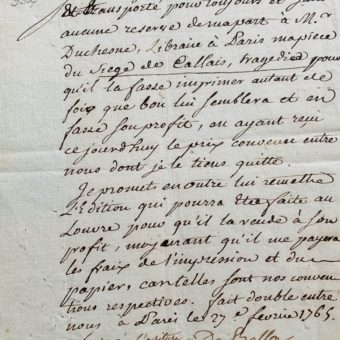 et transporté pour toujours et sans
aucune reserve de ma part à Mr.
Duchesne, Libraire à Paris ma pièce
du Siege de Callais, tragedie pour
qu'il la fasse imprimer autant de
fois que bon lui semblera et en
fasse son profit, en ayant reçu
ce jourd'huy le prix convenu entre
nous dont je le tiens quitte.
Je promet en outre lui remettre
L'Edition qui pourra être faite au
Louvre pour qu'il la vende à son
profit, moyenant qu'il me payera
les frais de l'impression et du
papier, car telles sont nos conven
tions respectives. fait double entre
nous à Paris le 27e fevrier 1765.
De Belloy